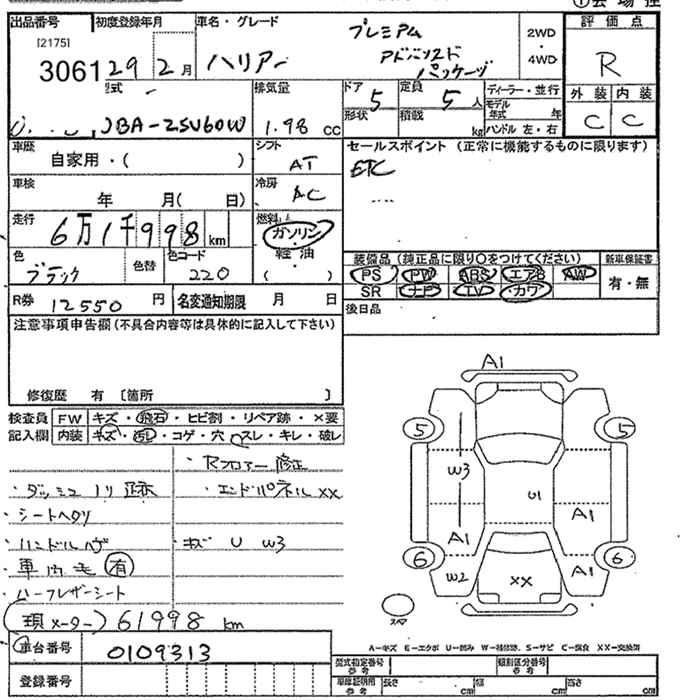 出品番号 初度登録年月 車名・グレード 評価点
[2175] プレミアム 2WD
3061 29 2月 ハリアー アドバンスド ・ R
パッケージ 4WD
型式 排気量 ドア 定員 ディーラー・並行 外装 内装
5 5人 モデル年式 年
DBA-ZSU60W 1.98 CC 形状 積載 kg ハンドル 左・右 C C
車歴 自家用・( ) シフト AT セールスポイント (正常に機能するものに限ります)
ETC
車検 年 月( 日) 冷房 AC
走行 6万1千998km 燃料 ガソリン
軽油
( )
色 ブラック 色替 色コード 220
装備品 (純正品に限り○をつけてください) 新車保証書
PS PW ABS エアB AW 有・無
SR ナビ TV カワ
R券 12550 円 名変通知期限 月 日 後日品
注意事項申告欄 (不具合内容等は具体的に記入して下さい)
修復歴 有 〔箇所 〕
検査員 FW キズ・飛石・ヒビ割・リペア跡・×要
記入欄 内装 キズ・汚れ・コゲ・穴・スレ・キレ・破レ
・Rフロアー修正
・ダッシュノリ跡 ・エンドパネルXX
・シートヘタリ
・ハンドルハゲ ・キズ U W3
・車内毛 有
・ハーフレザーシート
(現メーター) 61998 km
車台番号 0109313
登録番号
A1
5 5
W3
U1
A1 A1
6 6
W2 XX A1
スペア
A-キズ E-エクボ U-凹み W-補修跡、S-サビ C-腐食 XX-交換済
型式指定番号 参考 類別区分番号 参考
車庫証明用 参考 長さ cm 幅 cm 高さ cm